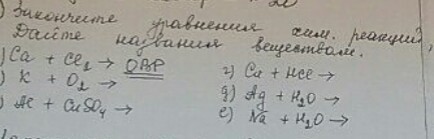 Закончите уравнения хим. реакций,
Дайте названия веществам.
) Ca + Cl₂ → ОВР
) K + O₂ →
) Al + CuSO₄ →
г) Cu + HCl →
д) Ag + H₂O →
е) Na + H₂O →